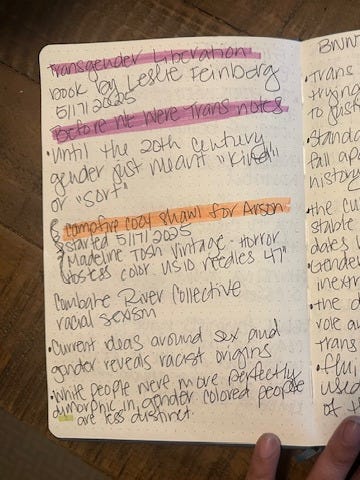 Transgender Liberation
book by Leslie Feinberg
5/17/2025
Before We Were Trans notes
• Until the 20th century
gender just meant "kind"
or "sort"
Campfire Cozy Shawl for Anson
started 5/17/2025
Madeline Tosh Vintage - Horror
Hostess color. US10 needles 47"
Combahe River Collective
racial sexism
• Current ideas around sex and
gender reveals racist origins
• White people were more perfectly
dymorphic in gender colored people
are less distinct.
BWWT
• Trans
trying
to just
Stando
fall apa
history
• the cu
stable
dates
• Gender
inextr
• the d
role a
trans
• flui
used
of th